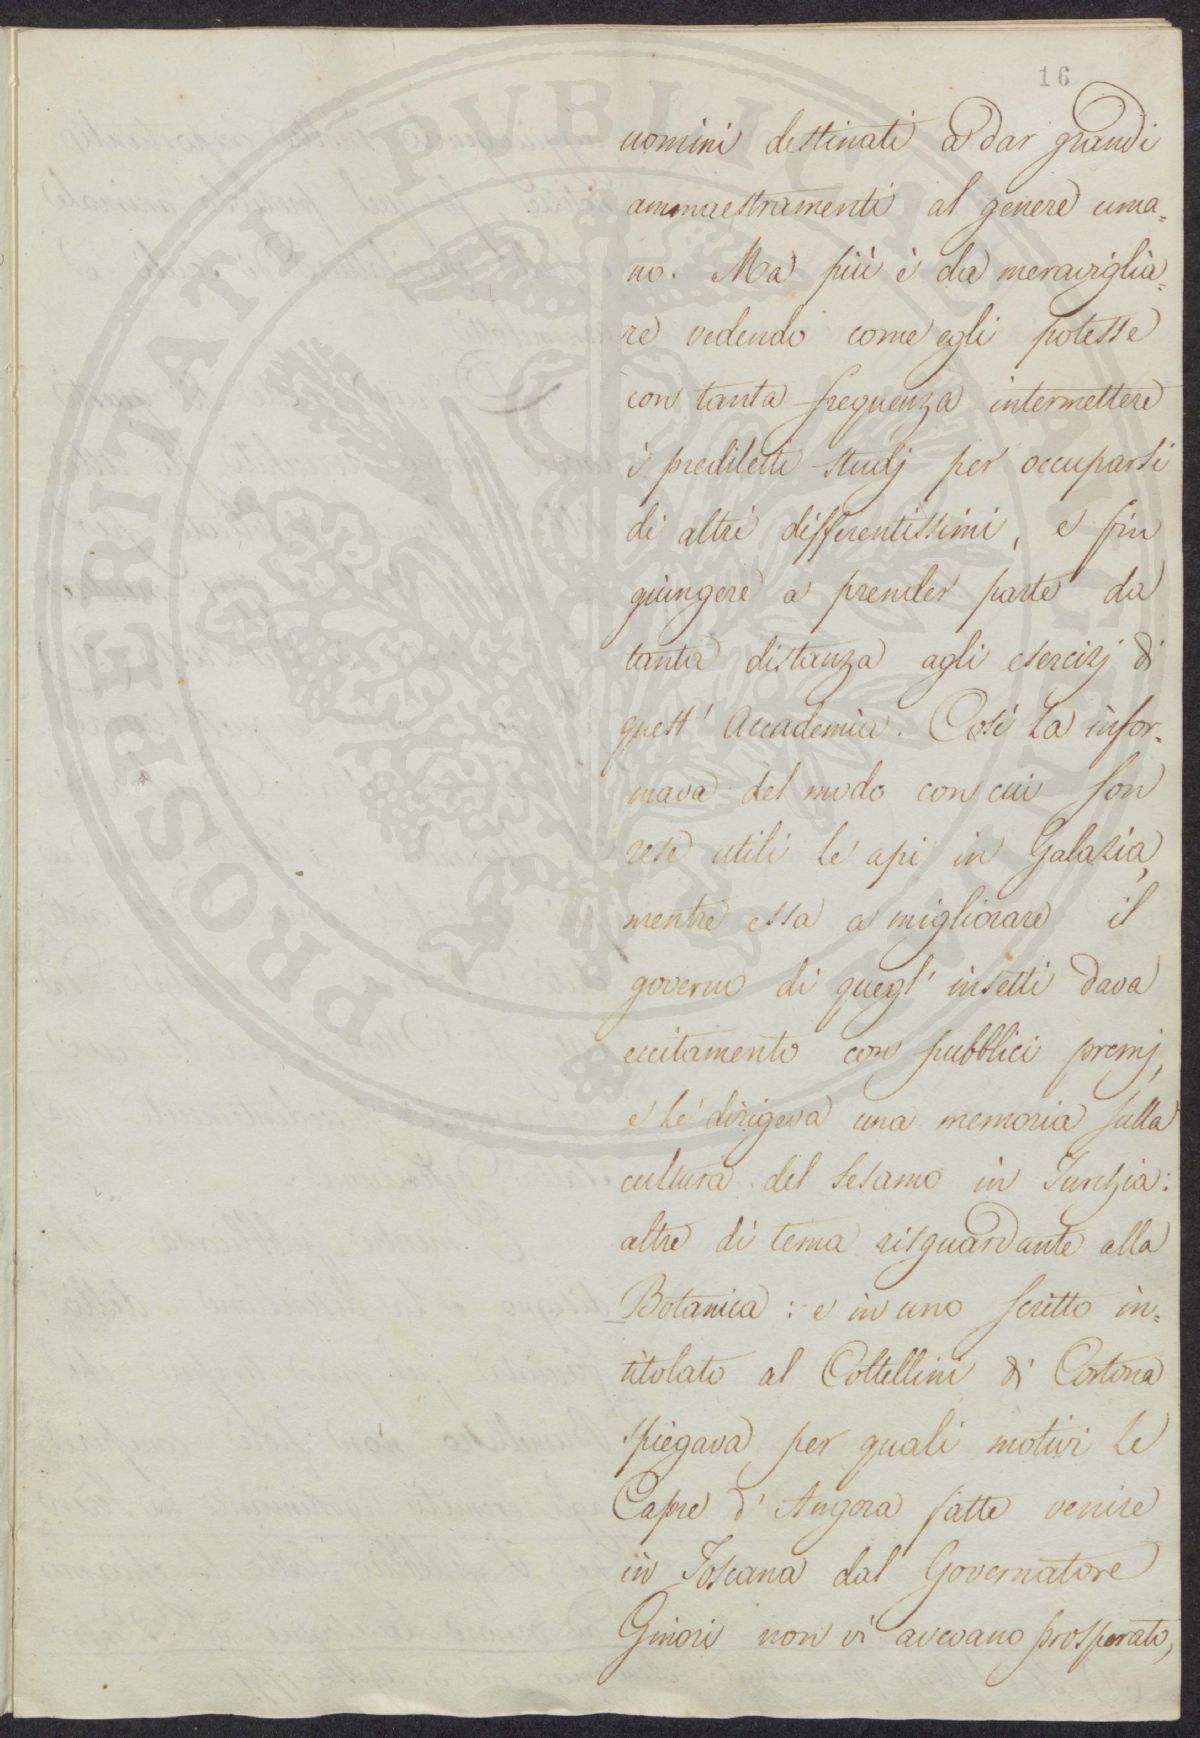 16
uomini destinati a dar grandi
ammaestramenti al genere uma=
no. Ma più è da meraviglia=
re vedendo come egli potesse
con tanta frequenza intermettere
i prediletti studj per occuparsi
di altri differentissimi, e fin
giungere a prender parte da
tanta distanza agli esercizj di
quest' Accademia. Così la infor=
mava del modo con cui son
rese utili le api in Galazia,
mentre essa a migliorare il
governo di quegl' insetti dava
eccitamento con pubblici premj,
e le dirigeva una memoria sulla
cultura del sesamo in Turchia:
altre di tema risguardante alla
Botanica: e in uno scritto in=
titolato al Coltellini di Cortona
spiegava per quali motivi le
Capre d' Angora fatte venire
in Toscana dal Governatore
Ginori non vi aveano prosperato,
PROSPERITATI PVBLICAE